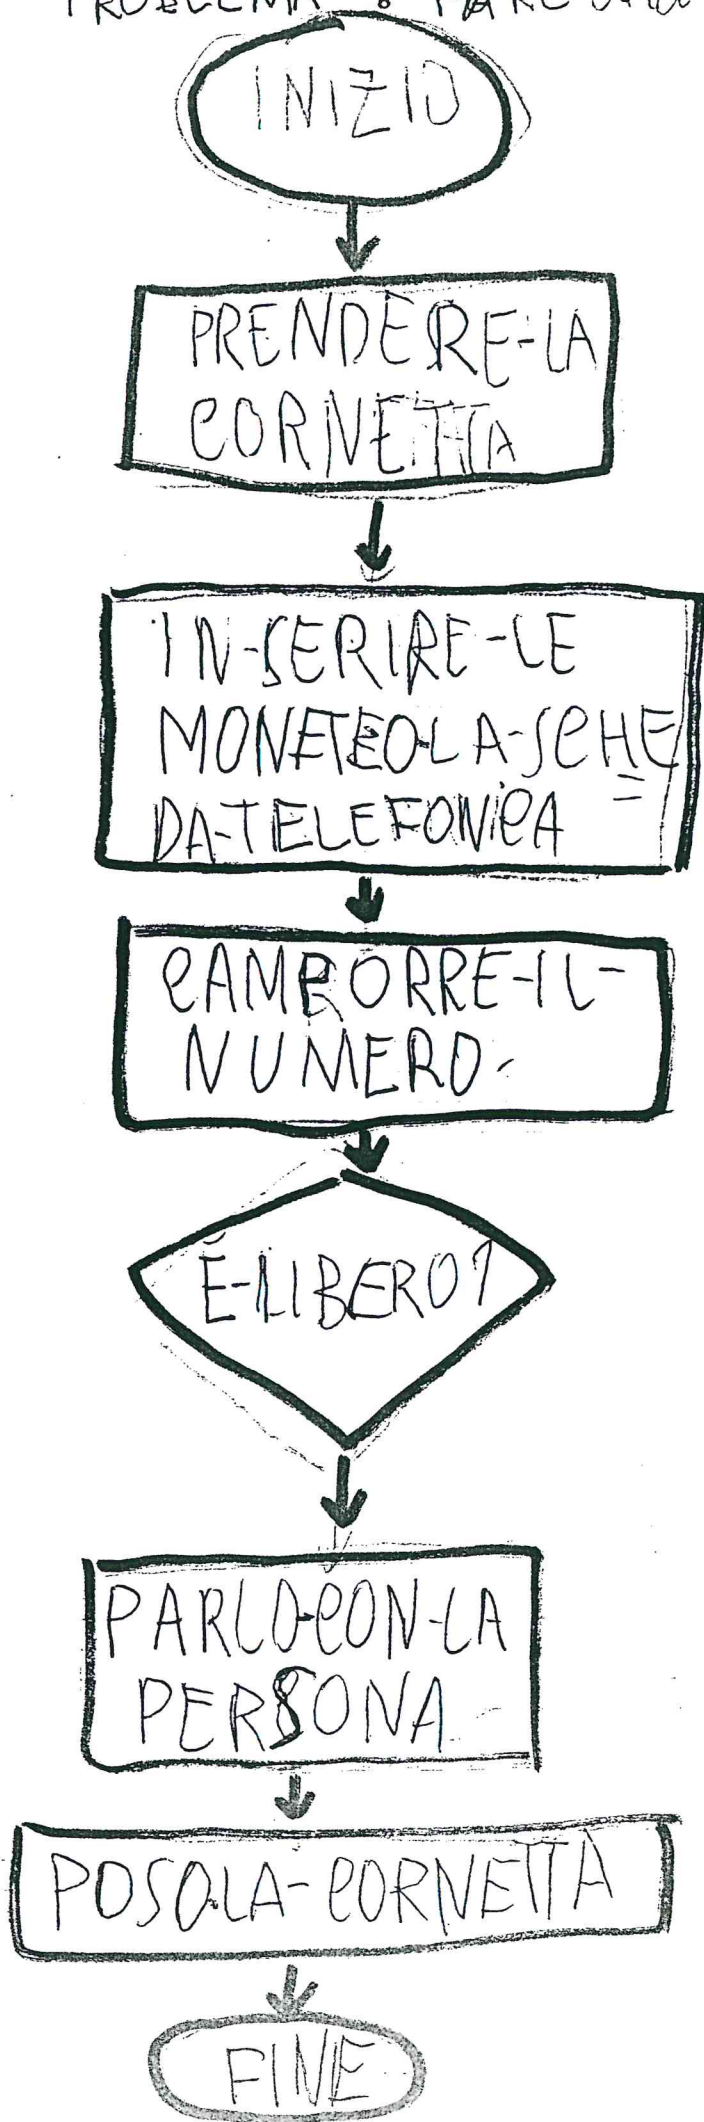 PROBLEMA : FARE una
INIZIO
PRENDERE-LA
CORNETTA
IN-SERIRE-LE
MONETEOLA-SCHE
DA-TELEFONICA
CAMPORRE-IL-
NUMERO.
È-LIBERO?
PARLO-CON-LA
PERSONA
POSOLA-CORNETTA
FINE